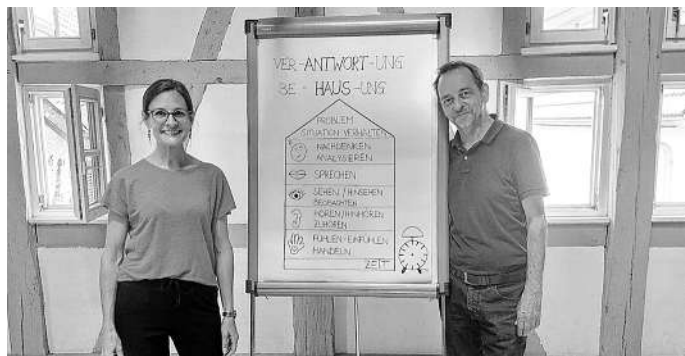 VER-ANTWORT-UNG
BE-HAUS-UNG
PROBLEM
SITUATION VERHALTEN
NACHDENKEN
ANALYSIEREN
SPRECHEN
SEHEN/HINSEHEN
BEOBACHTEN
HÖREN/HINHÖREN
ZUHÖREN
FÜHLEN-EINFÜHLEN
HANDELN
ZEIT